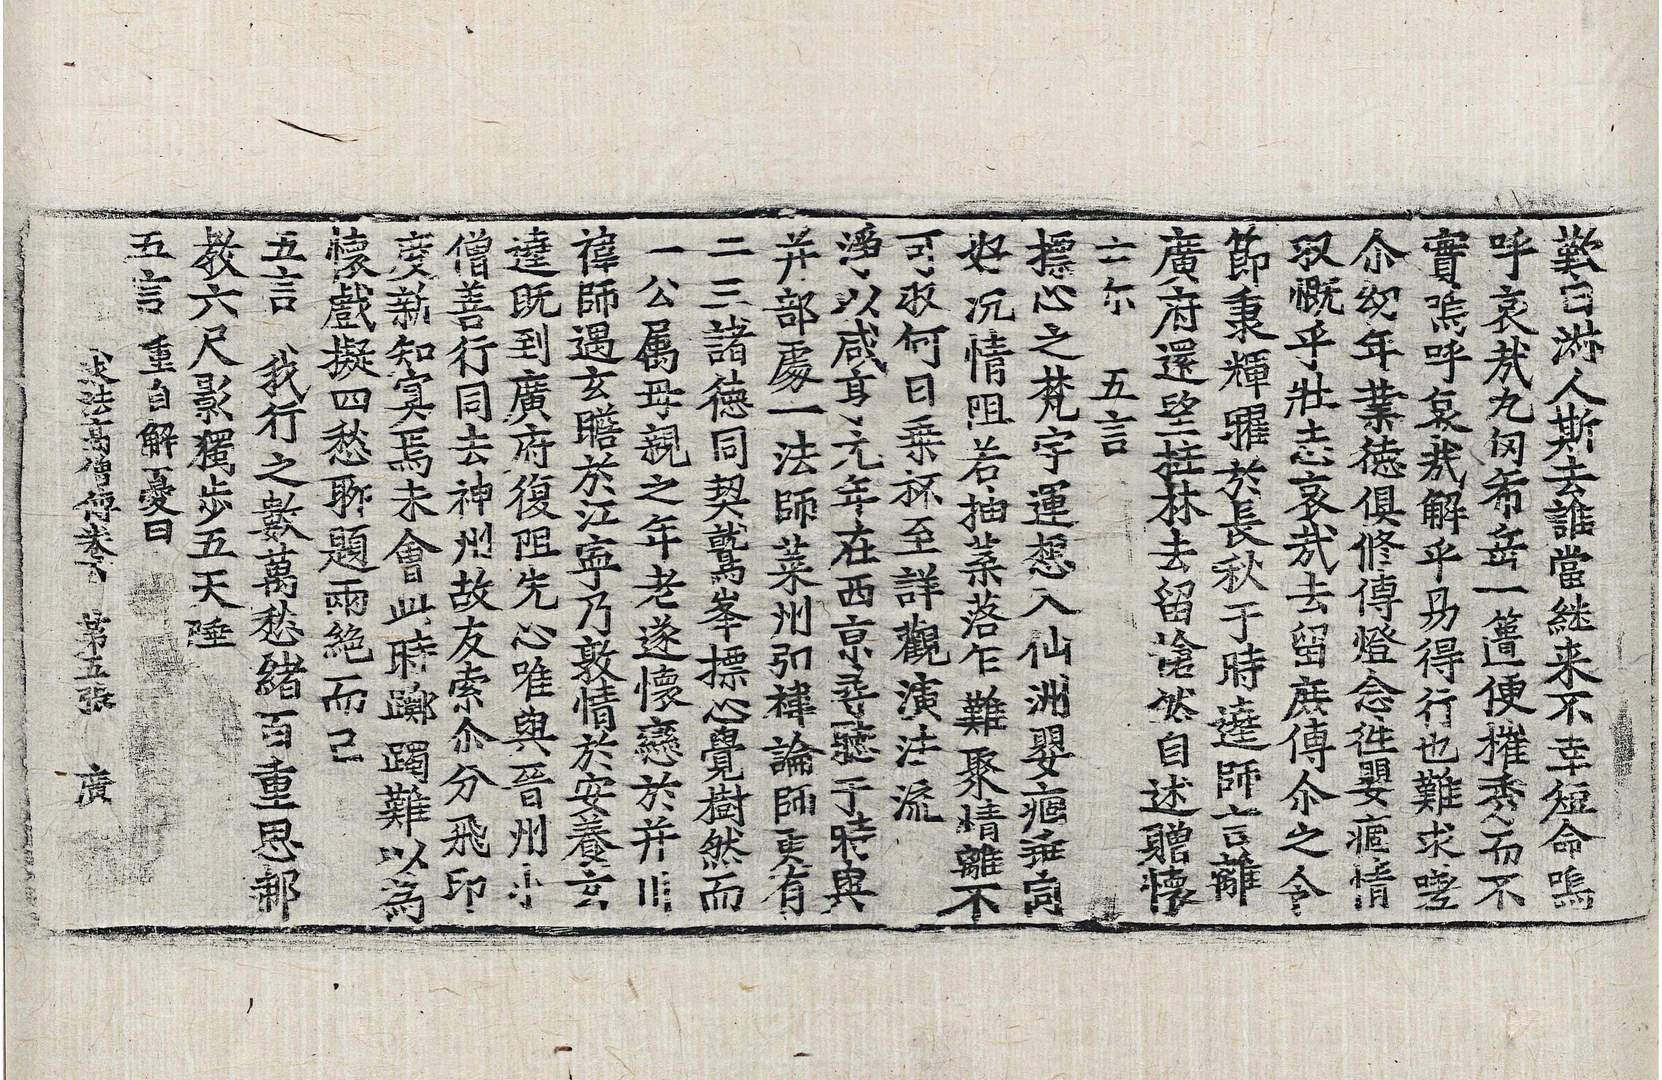 歎曰淋人斯去誰當継来不幸短命嗚
呼哀㢤九仞希岳一簣便摧秀而不
實嗚呼哀㢤解乎易得行也難求嗟
尒幼年業徳俱修傳燈念往嬰痾情
㕛慨乎壯志哀㢤去留庶傳尒之令
節秉輝曜於長秋于時達師言離
廣府還望桂林去留愴然自述贈懷
云尒　五言
摽心之梵字運想入仙洲嬰痼乖同
好沉情阻若抽葉落乍難聚情離不
可収何日乗杯至詳觀演法流
淨以咸亨元年在西京尋聽于時與
并部處一法師莱州弘禕論師更有
二三諸徳同契鷲峯摽心覺樹然而
一公属母親之年老遂懷戀於并川
禕師遇玄瞻於江寧乃敦情於安養玄
逵既到廣府復阻先心唯與晉州小
僧善行同去神州故友索尒分飛印
度新知冥焉未會此時躑躅難以為
懷戲擬四愁聊題兩絶而已
五言　我行之數萬愁緒百重思那
教六尺影獨步五天陲
五言　重自解憂曰
求法高僧傳卷下　第五張　廣